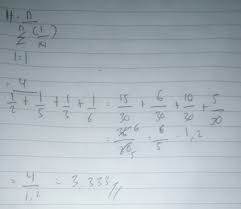 H = n
n
Σ (1/xi)
i=1
= 4
1/2 + 1/5 + 1/3 + 1/6 = 15/30 + 6/30 + 10/30 + 5/30
= 36 6 / 30 5 = 6/5 = 1,2
= 4/1,2 = 3.333 //